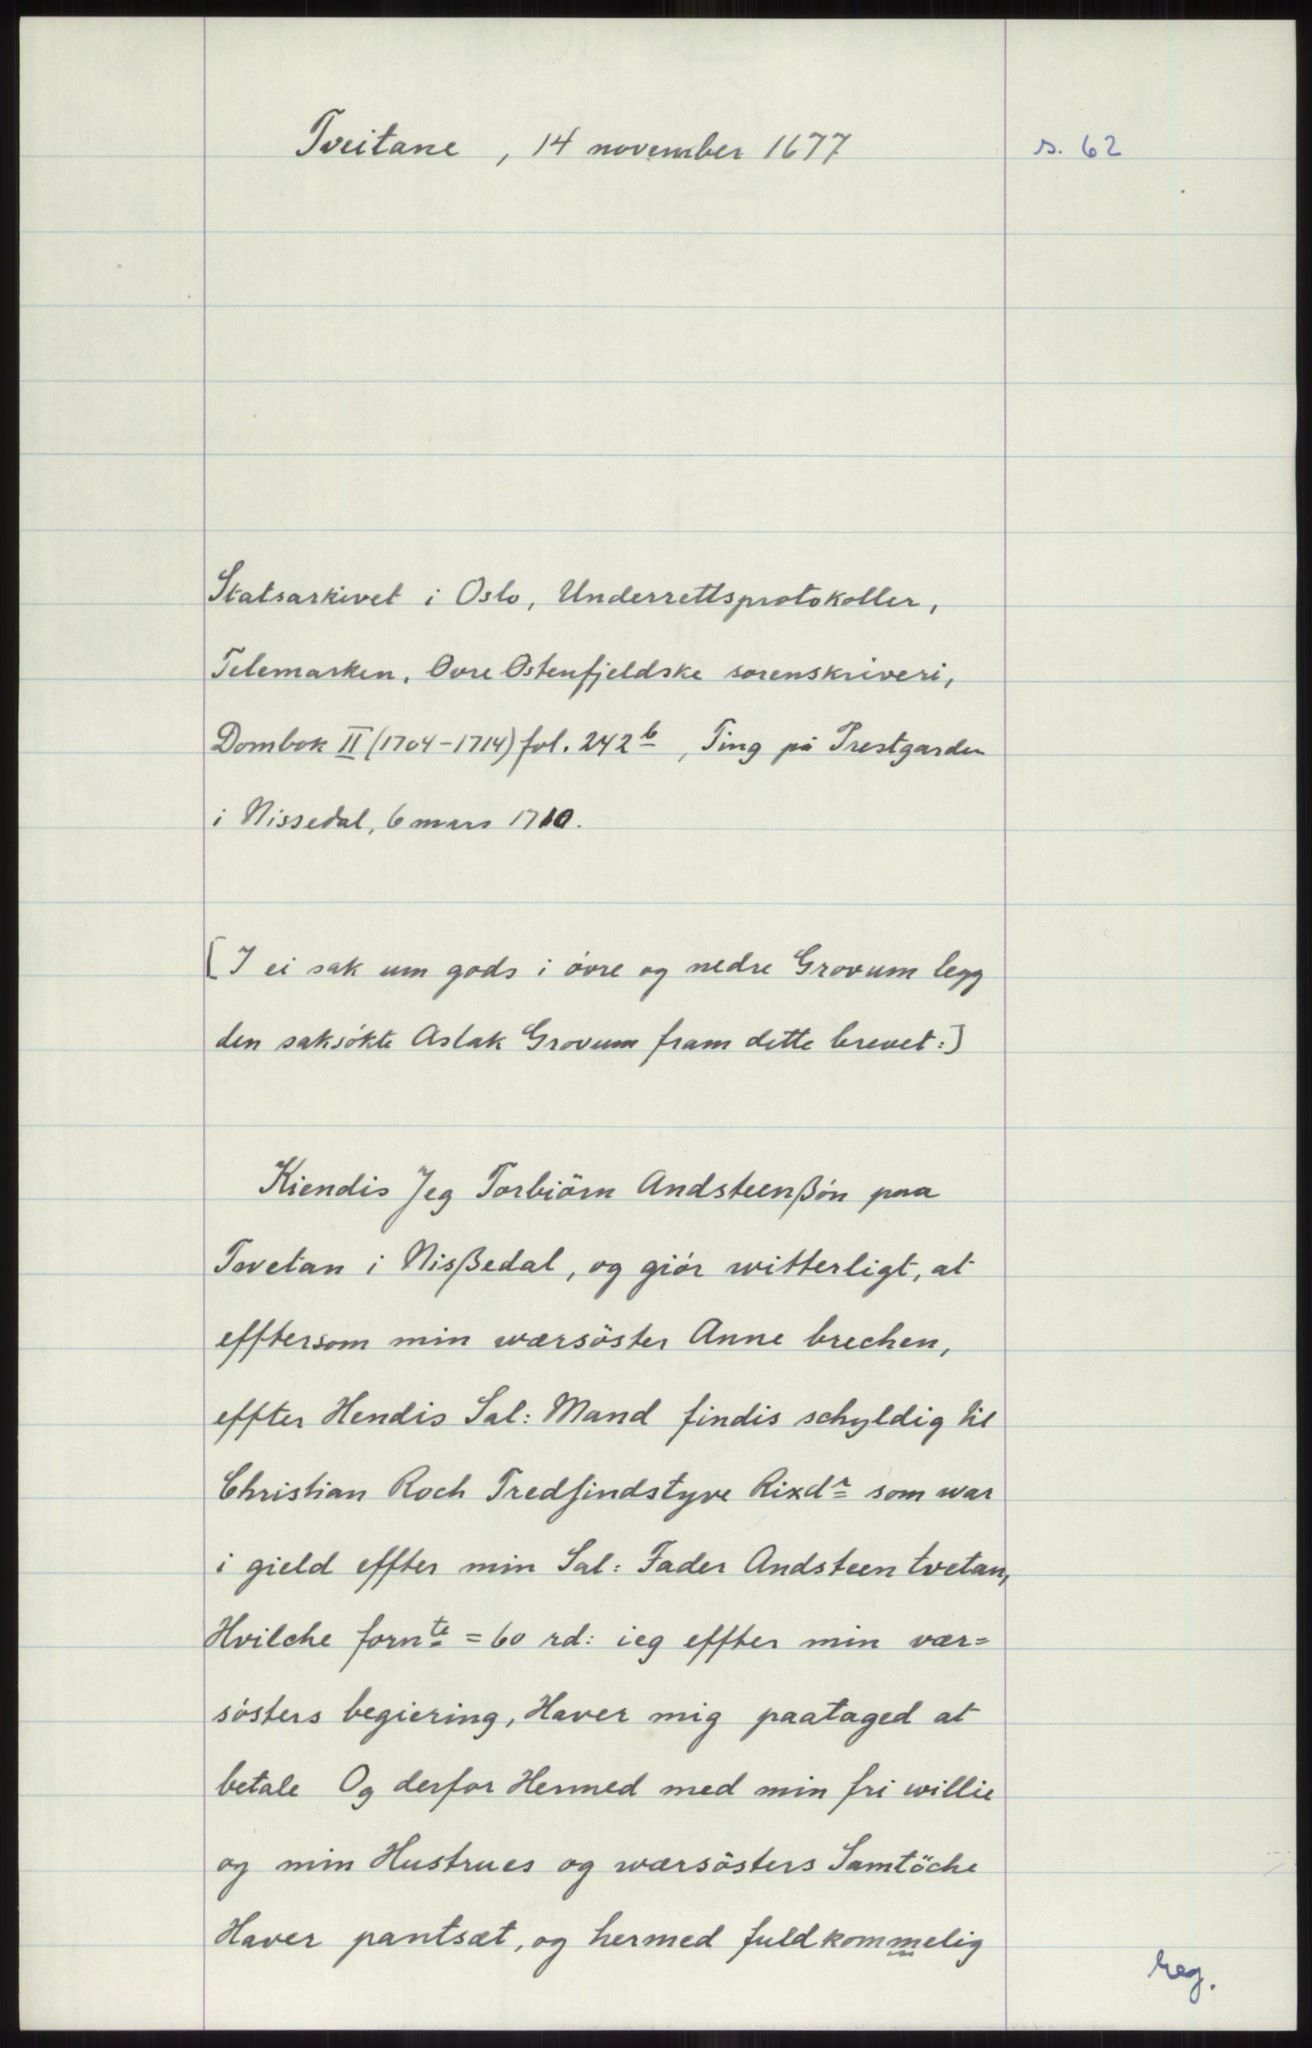 Tveitane, 14 november 1677
s. 62
Statsarkivet i Oslo, Underrettsprotokoller,
Telemarken, Øvre Østenfjeldske sorenskriveri,
Dombok II (1704-1714) fol. 242 b, Ting på Prestgarden
i Nissedal, 6 mars 1710.
[I ei sak um gods i övre og nedre Grovum legg
den saksökte Aslak Grovum fram dette brevet:]
Kiendis Jeg Torbiörn Andsteenßön paa
Tvetan i Nisßedal, og giör witterligt, at
efftersom min wærsöster Anne brechen,
effter Hendis Sal: Mand findis schyldig til
Christian Roch Tredsindstyve Rixdr som war
i gield effter min Sal: Fader Andsteen tvetan,
Hvilche fornte = 60 rd: ieg effter min vær=
sösters begiering, Haver mig paataged at
betale Og derfor Hermed med min fri willie
og min Hustrues og wærsösters Samtöche
Haver pantsæt, og hermed fuldkommelig
reg.